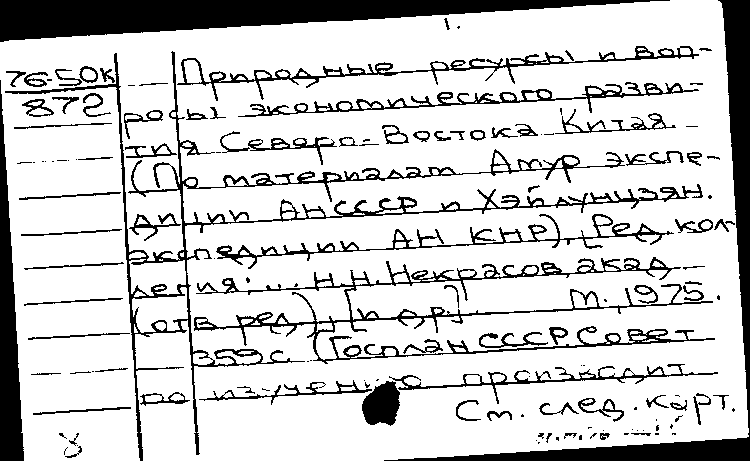 1.
76-50к
872
Природные ресурсы и воп-
росы экономического разви-
тия Северо-Востока Китая.
(По материалам Амур экспе-
диции АН СССР и Хэйлунцзян.
экспедиции АН КНР), [Ред. кол-
легия: ... Н.Н. Некрасов, акад
(отв ред), [и др]. М., 1975.
359 с. (Госплан СССР, Совет
по изучению производит.
См. след. карт.